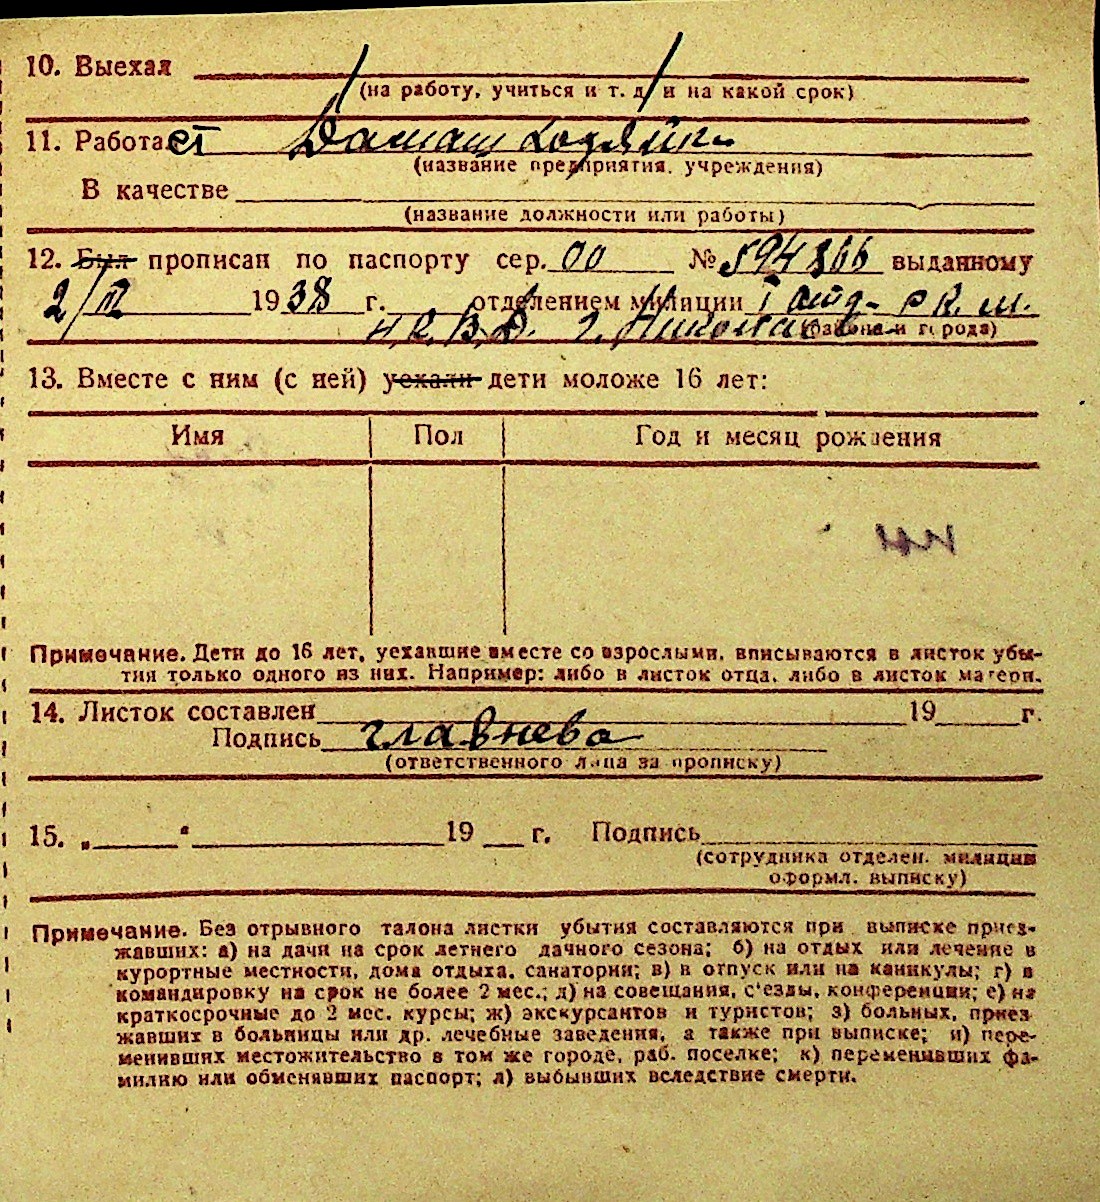 10. Выехал
(на работу, учиться и т. д. и на какой срок)
11. Работает Домаш хозяйка
(название предприятия, учреждения)
В качестве
(название должности или работы)
12. Был прописан по паспорту сер. 00 № 594866 выданному
2/ 1938 г. отделением милиции I отд. р к. м.
Н.К.В.Д. г. Николаев (района и города)
13. Вместе с ним (с ней) уехали дети моложе 16 лет:
Имя Пол Год и месяц рождения
Примечание. Дети до 16 лет, уехавшие вместе со взрослыми, вписываются в листок убы-
тия только одного из них. Например: либо в листок отца, либо в листок матери.
14. Листок составлен 19 г.
Подпись главнева
(ответственного лица за прописку)
15. „ “ 19 г. Подпись
(сотрудника отделен. милиции
оформл. выписку)
Примечание. Без отрывного талона листки убытия составляются при выписке приез-
жавших: а) на дачи на срок летнего дачного сезона; б) на отдых или лечение в
курортные местности, дома отдыха, санатории; в) в отпуск или на каникулы; г) в
командировку на срок не более 2 мес.; д) на совещания, с'езды, конференции; е) на
краткосрочные до 2 мес. курсы; ж) экскурсантов и туристов; з) больных, приез-
жавших в больницы или др. лечебные заведения, а также при выписке; и) пере-
менивших местожительство в том же городе, раб. поселке; к) переменивших фа-
милию или обменявших паспорт; л) выбывших вследствие смерти.